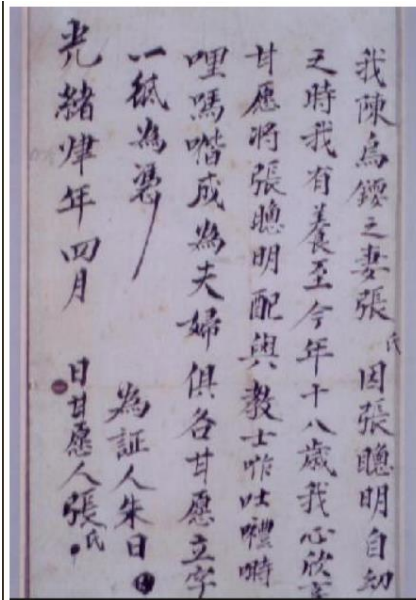 我陳烏之妻張氏因張聰明自幼
之時我有養至今年十八歲我心欣
甘愿將張聰明配與教士咋吐禮
哩嗎喈成為夫婦俱各甘愿立字
一紙為凴 為証人朱日
光緒肆年四月 日甘愿人張氏